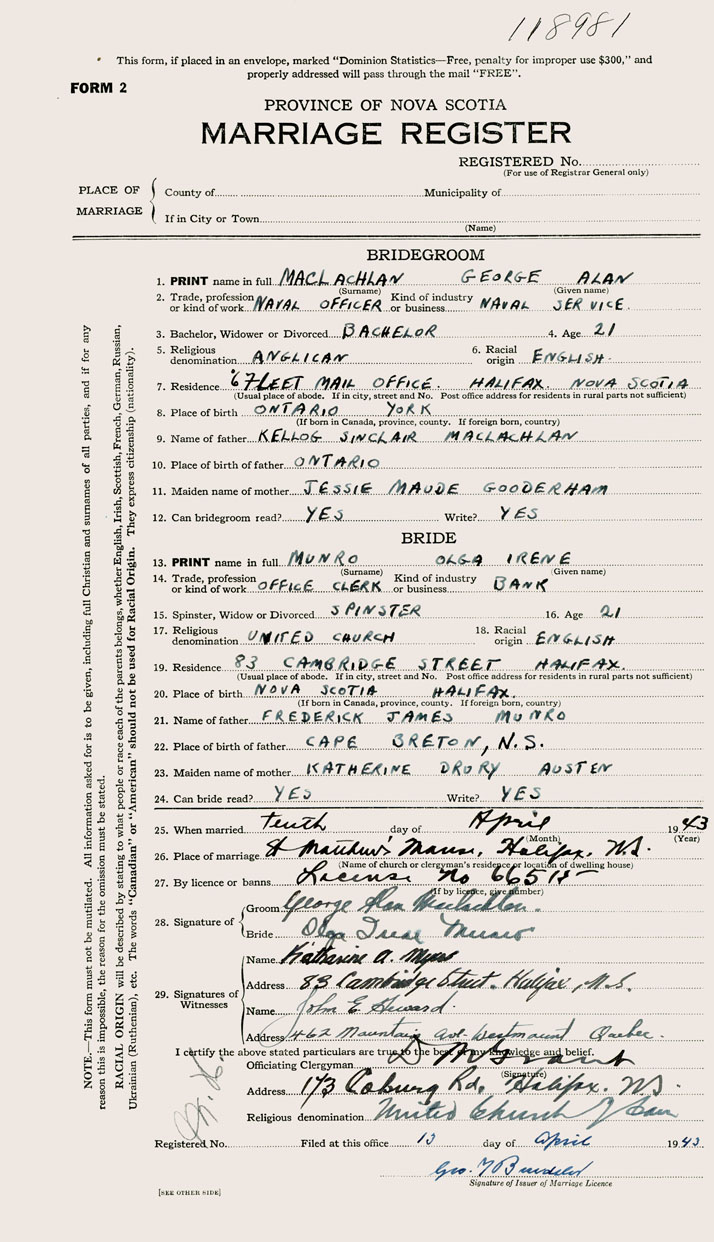 118981
This form, if placed in an envelope, marked "Dominion Statistics—Free, penalty for improper use $300," and
properly addressed will pass through the mail "FREE".
FORM 2
PROVINCE OF NOVA SCOTIA
MARRIAGE REGISTER
REGISTERED No.
(For use of Registrar General only)
PLACE OF MARRIAGE
County of
Municipality of
If in City or Town
(Name)
BRIDEGROOM
1. PRINT name in full MACLACHLAN GEORGE ALAN
(Surname) (Given name)
2. Trade, profession or kind of work NAVAL OFFICER Kind of industry or business NAVAL SERVICE.
3. Bachelor, Widower or Divorced BACHELOR 4. Age 21
5. Religious denomination ANGLICAN 6. Racial origin ENGLISH.
7. Residence FLEET MAIL OFFICE. HALIFAX. NOVA SCOTIA
(Usual place of abode. If in city, street and No. Post office address for residents in rural parts not sufficient)
8. Place of birth ONTARIO YORK
(If born in Canada, province, county. If foreign born, country)
9. Name of father KELLOG SINCLAIR MACLACHLAN
10. Place of birth of father ONTARIO
11. Maiden name of mother JESSIE MAUDE GOODERHAM
12. Can bridegroom read? YES Write? YES
BRIDE
13. PRINT name in full MUNRO OLGA IRENE
(Surname) (Given name)
14. Trade, profession or kind of work OFFICE CLERK Kind of industry or business BANK
15. Spinster, Widow or Divorced SPINSTER 16. Age 21
17. Religious denomination UNITED CHURCH 18. Racial origin ENGLISH
19. Residence 83 CAMBRIDGE STREET HALIFAX.
(Usual place of abode. If in city, street and No. Post office address for residents in rural parts not sufficient)
20. Place of birth NOVA SCOTIA HALIFAX.
(If born in Canada, province, county. If foreign born, country)
21. Name of father FREDERICK JAMES MUNRO
22. Place of birth of father CAPE BRETON, N.S.
23. Maiden name of mother KATHERINE DRURY AUSTEN
24. Can bride read? YES Write? YES
25. When married tenth day of April 1943
(Month) (Year)
26. Place of marriage St Matthew's Manse, Halifax, N.S.
(Name of church or clergyman's residence or location of dwelling house)
27. By licence or banns License No
(If by licence, give number)
28. Signature of
Groom George Alan Maclachlan.
Bride Olga Irene Munro
29. Signatures of Witnesses
Name Katharine A. Myers
Address 83 Cambridge Street. Halifax, N.S.
Name John E Heward.
Address 462 Mountain Ave. Westmount Quebec.
I certify the above stated particulars are true to the best of my knowledge and belief.
Officiating Clergyman
(Signature)
Address 173 Coburg Rd, Halifax. N.S.
Religious denomination United Church of Can
Registered No. Filed at this office 13 day of April 1943
Geo.
Signature of Issuer of Marriage Licence
[SEE OTHER SIDE]
NOTE.—This form must not be mutilated. All information asked for is to be given, including full Christian and surnames of all parties, and if for any
reason this is impossible, the reason for the omission must be stated.
RACIAL ORIGIN will be described by stating to what people or race each of the parents belongs, whether English, Irish, Scottish, French, German, Russian,
Ukrainian (Ruthenian), etc. The words "Canadian" or "American" should not be used for Racial Origin. They express citizenship (nationality).